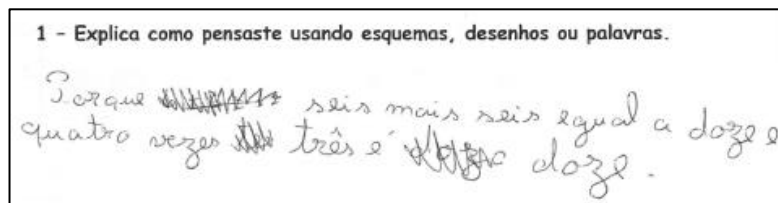 1 - Explica como pensaste usando esquemas, desenhos ou palavras.
Porque seis mais seis egual a doze e
quatro vezes três é doze.